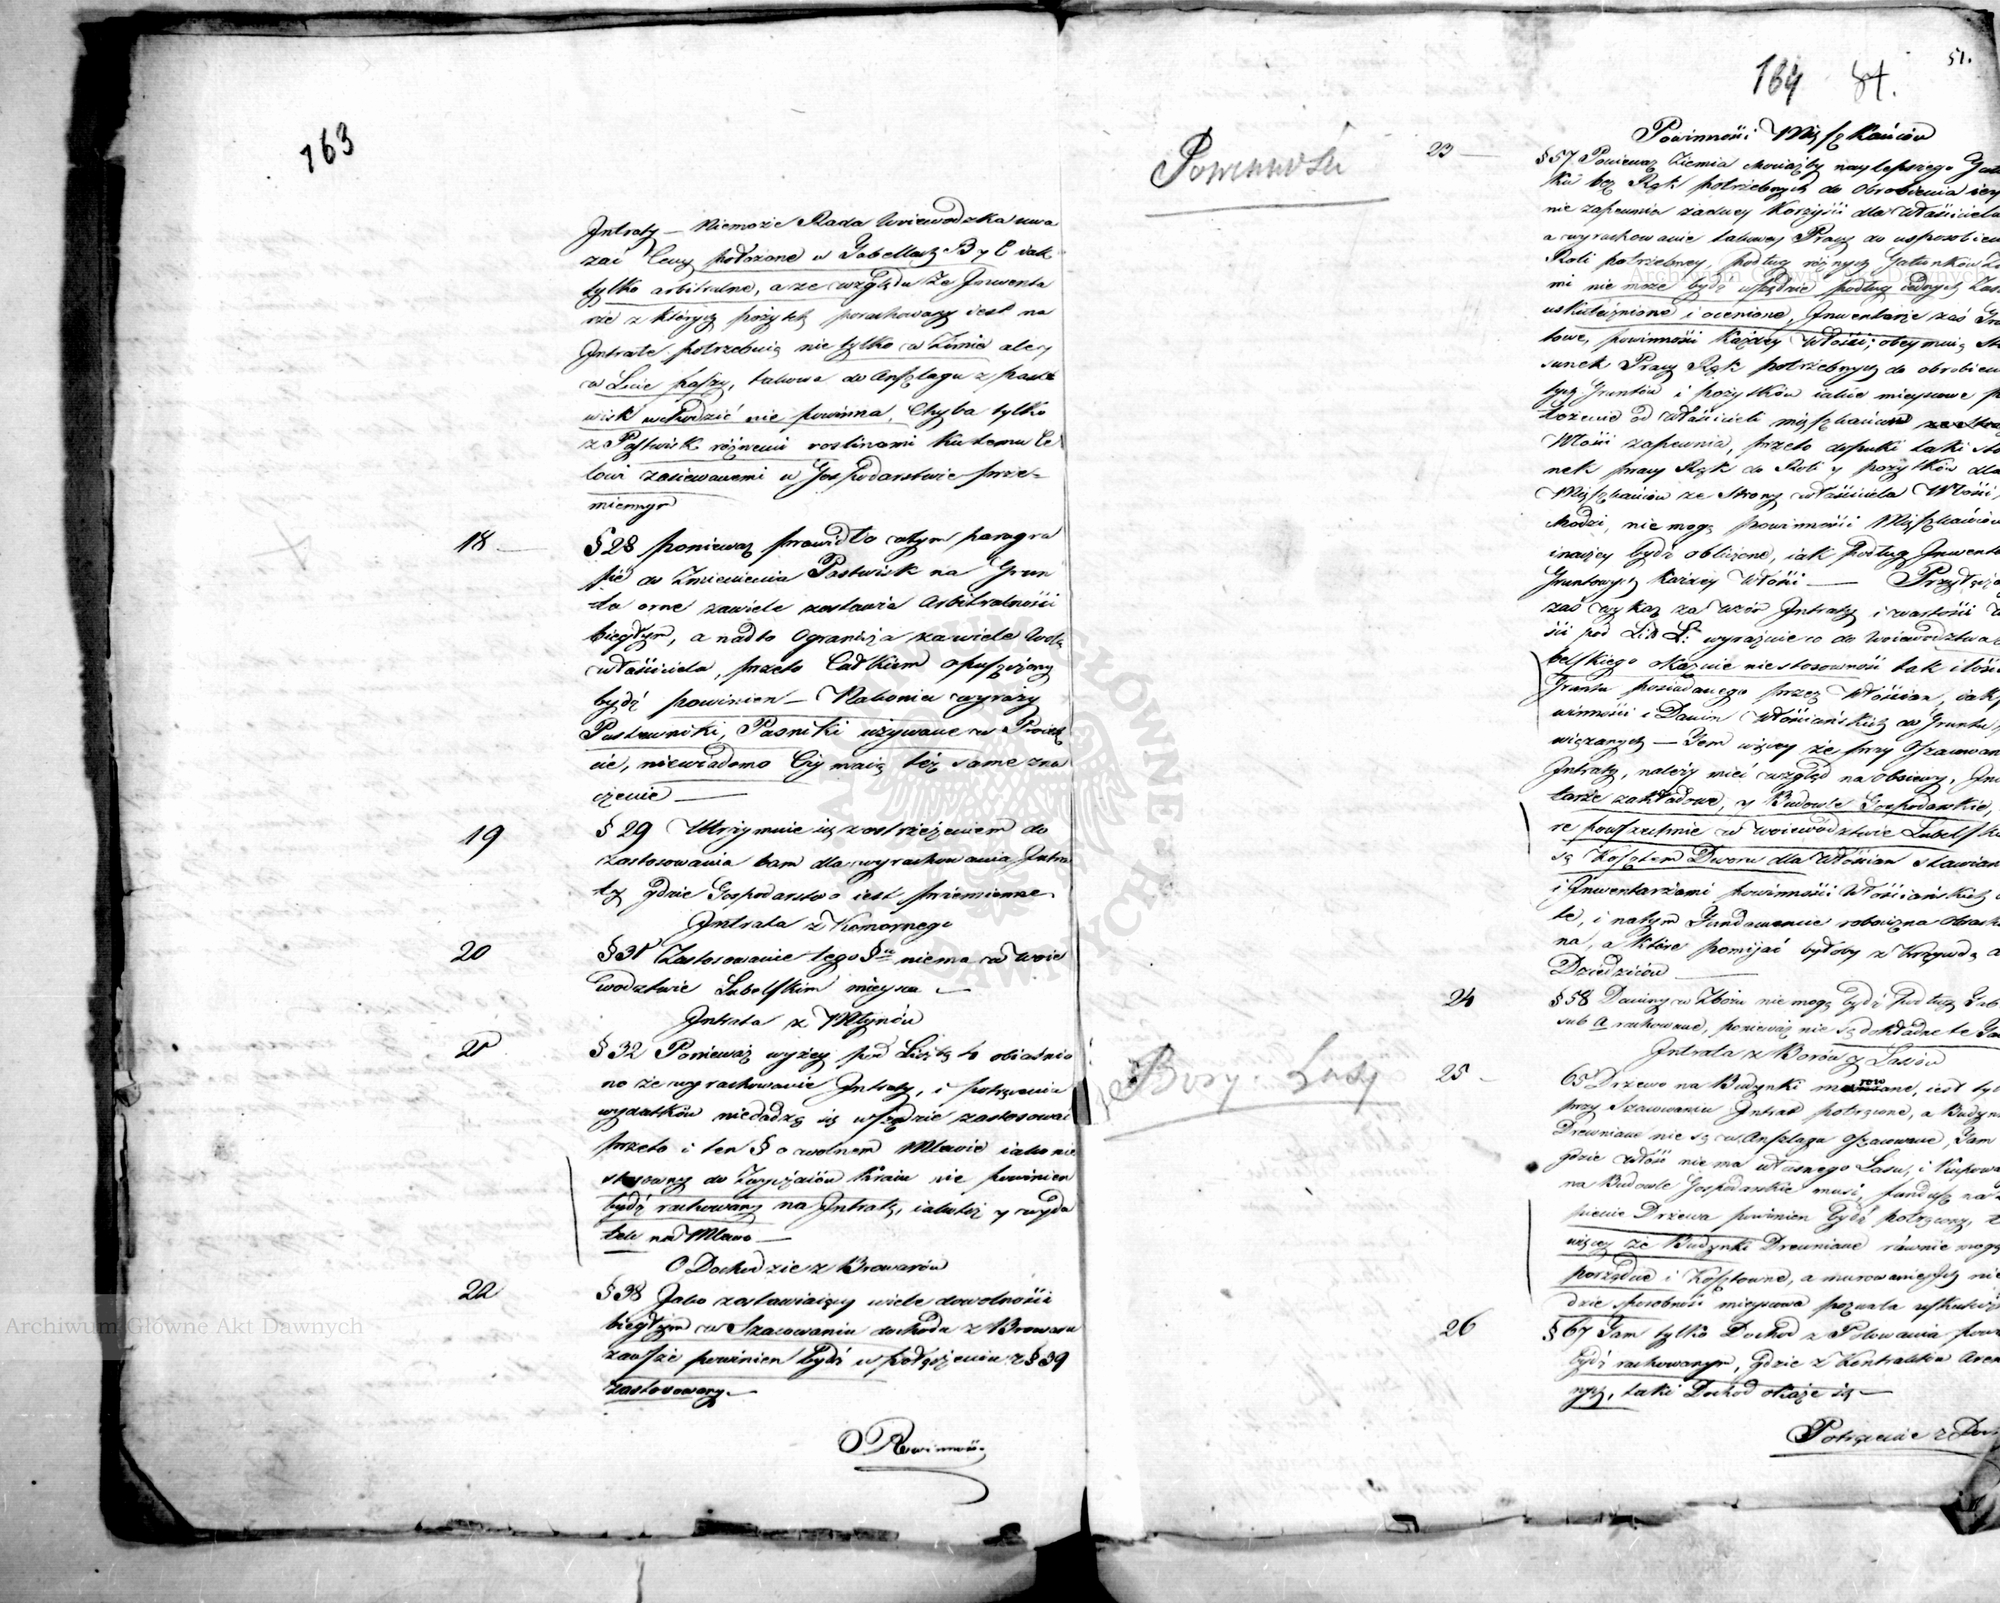 163
Intraty — Niemoże Rada Woiewodzka uwa
żać Ceny położone w Tabellach B y C iak
tylko arbitralne, a ze względu że Inwenta
rze z których pożytek porachowany iest na
Intratę potrzebuią nie tylko w Zimie ale y
w Lecie paszy, takowa do Anszlagu z past
wisk wchodzić nie powinna, Chyba tylko
z Pastwisk różnemi roslinami ku temu Ce
lowi zasiewanemi w Gospodarstwie prze=
miennym
18 — § 28 ponieważ prawidło w tym paragra
fie do Zmienienia Pastwisk na Grun
ta orne zawiele zostawia Arbitralności
biegłym, a nadto Ogranicza zawiele Wolą
właściciela, przeto Całkiem opuszczony
bydź powinien — Nakoniec wyrazy
Pastewniki, Pasniki używane w
cie, niewiadomo Czy maią też same zna
czenie —
19 § 29 Utrzymuie się z ostrzeżeniem do
zastosowania tam dla wyrachowania Intra
ty gdzie Gospodarstwo iest przemienne
Intrata z Komornego
20 § 31 Zastosowanie tego § niema w Woie
wodztwie Lubelskim mieysca —
Intrata z Młynów
21 § 32 Ponieważ wyżey pod Liczbą to obiaśnio
no że wyrachowanie Intraty, i potrącenia
wydatków niedadzą się wszędzie zastosować
przeto i ten § o wolnem Mlewie iako nie
stosowny do Zwyczaiów Kraiu nie powinien
bydź rachowany na Intratę, iakoteż y wyda
tek na Mlewo —
O Dochodzie z Browarów
22 § 38 Jako zostawiaiący wiele dowolności
biegłym w Szacowaniu dochodu z Browaru
zawsze powinien bydź w połączeniu z § 39
zastosowany. —
O Powinnoś.
51.
164 84.
Powinności Mieszkańców
23 — § 57 Ponieważ Ziemia chociażby naylepszego Gatu
ku bez Rąk potrzebnych do Obrobienia iey
nie zapewnia żadney Korzyści dla właściciela
a wyrachowanie takowey Pracy do usposobien
Roli potrzebney, podług różnych Gatunków Zie
mi nie może bydź wszędzie podług iednych Zas
uskutecznione i ocenione, Inwentarze zaś Gru
towe, powinności Każdey Włości, obeymuią sto
sunek Pracy Rąk potrzebnych do obrobien
tych Gruntów i pożytków iakie mieyscowe p
łożenie od właścicieli mieszkańców ze stro
Włości zapewnia, przeto dopóki taki sto
nek pracy Rąk do Roli y pożytków dla
Mieszkańców ze Strony właściciela Włości,
chodzi, nie mogą powinności Mieszkańców
inaczey bydź obliczone, iak podług Inwenta
Gruntowych Każdey Włości — Przyłączo
zaś wykaz za wzór Intraty i wartości W
ści pod Lit: L: wyraźnie co do Woiewodztwa
belskiego okazuie niestosowność tak ilości
Gruntu posiadanego przez Włościan, iak
winności i Danin Włościańskich do Gruntu
wiązanych — Tem więcey że przy Oszacowan
Intraty, należy mieć wzgląd na obsiewy, Inw
tarze zakładowe, y Budowle Gospodarskie,
re powszechnie w Woiewództwie Lubelski
są Kosztem Dworu dla Włościan stawian
i Inwentarzami powinności Włościańskich
te, i natym Fundamencie robocizna obracho
na, a które pomijać byłoby z Krzywdą
Dziedziców —
24 § 58 Daniny w Zbożu nie mogą bydź podług Tab
sub A rachowane, ponieważ nie są dokładne te
Intrata z Borów y Lasów
25 — 65 Drzewo na Budynki murowane, iest tyl
przy Szacowaniu Intrat potrącone, a Budyn
Drewniane nie są w Anszlagu Szacowane, Tam
gdzie włość nie ma własnego Lasu, i Kupowa
na Budowle Gospodarskie musi, fundusz na
pienie Drzewa powinien bydź potrącony, t
więcey że Budynki Drewniane równie mogą
porządne i Kosztowne, a murowanie ich nie
dzie sposobność mieyscowa pozwala uskuteczn
26 § 67 Tam tylko Dochód z Polowania powi
bydź rachowanym, gdzie z Kontraktów Aren
nych, taki Dochod okaże się —
Potrącenie z Do
Bory. Lasy
Archiwum Główne Akt Dawnych
Archiwum Główne Akt Dawnych